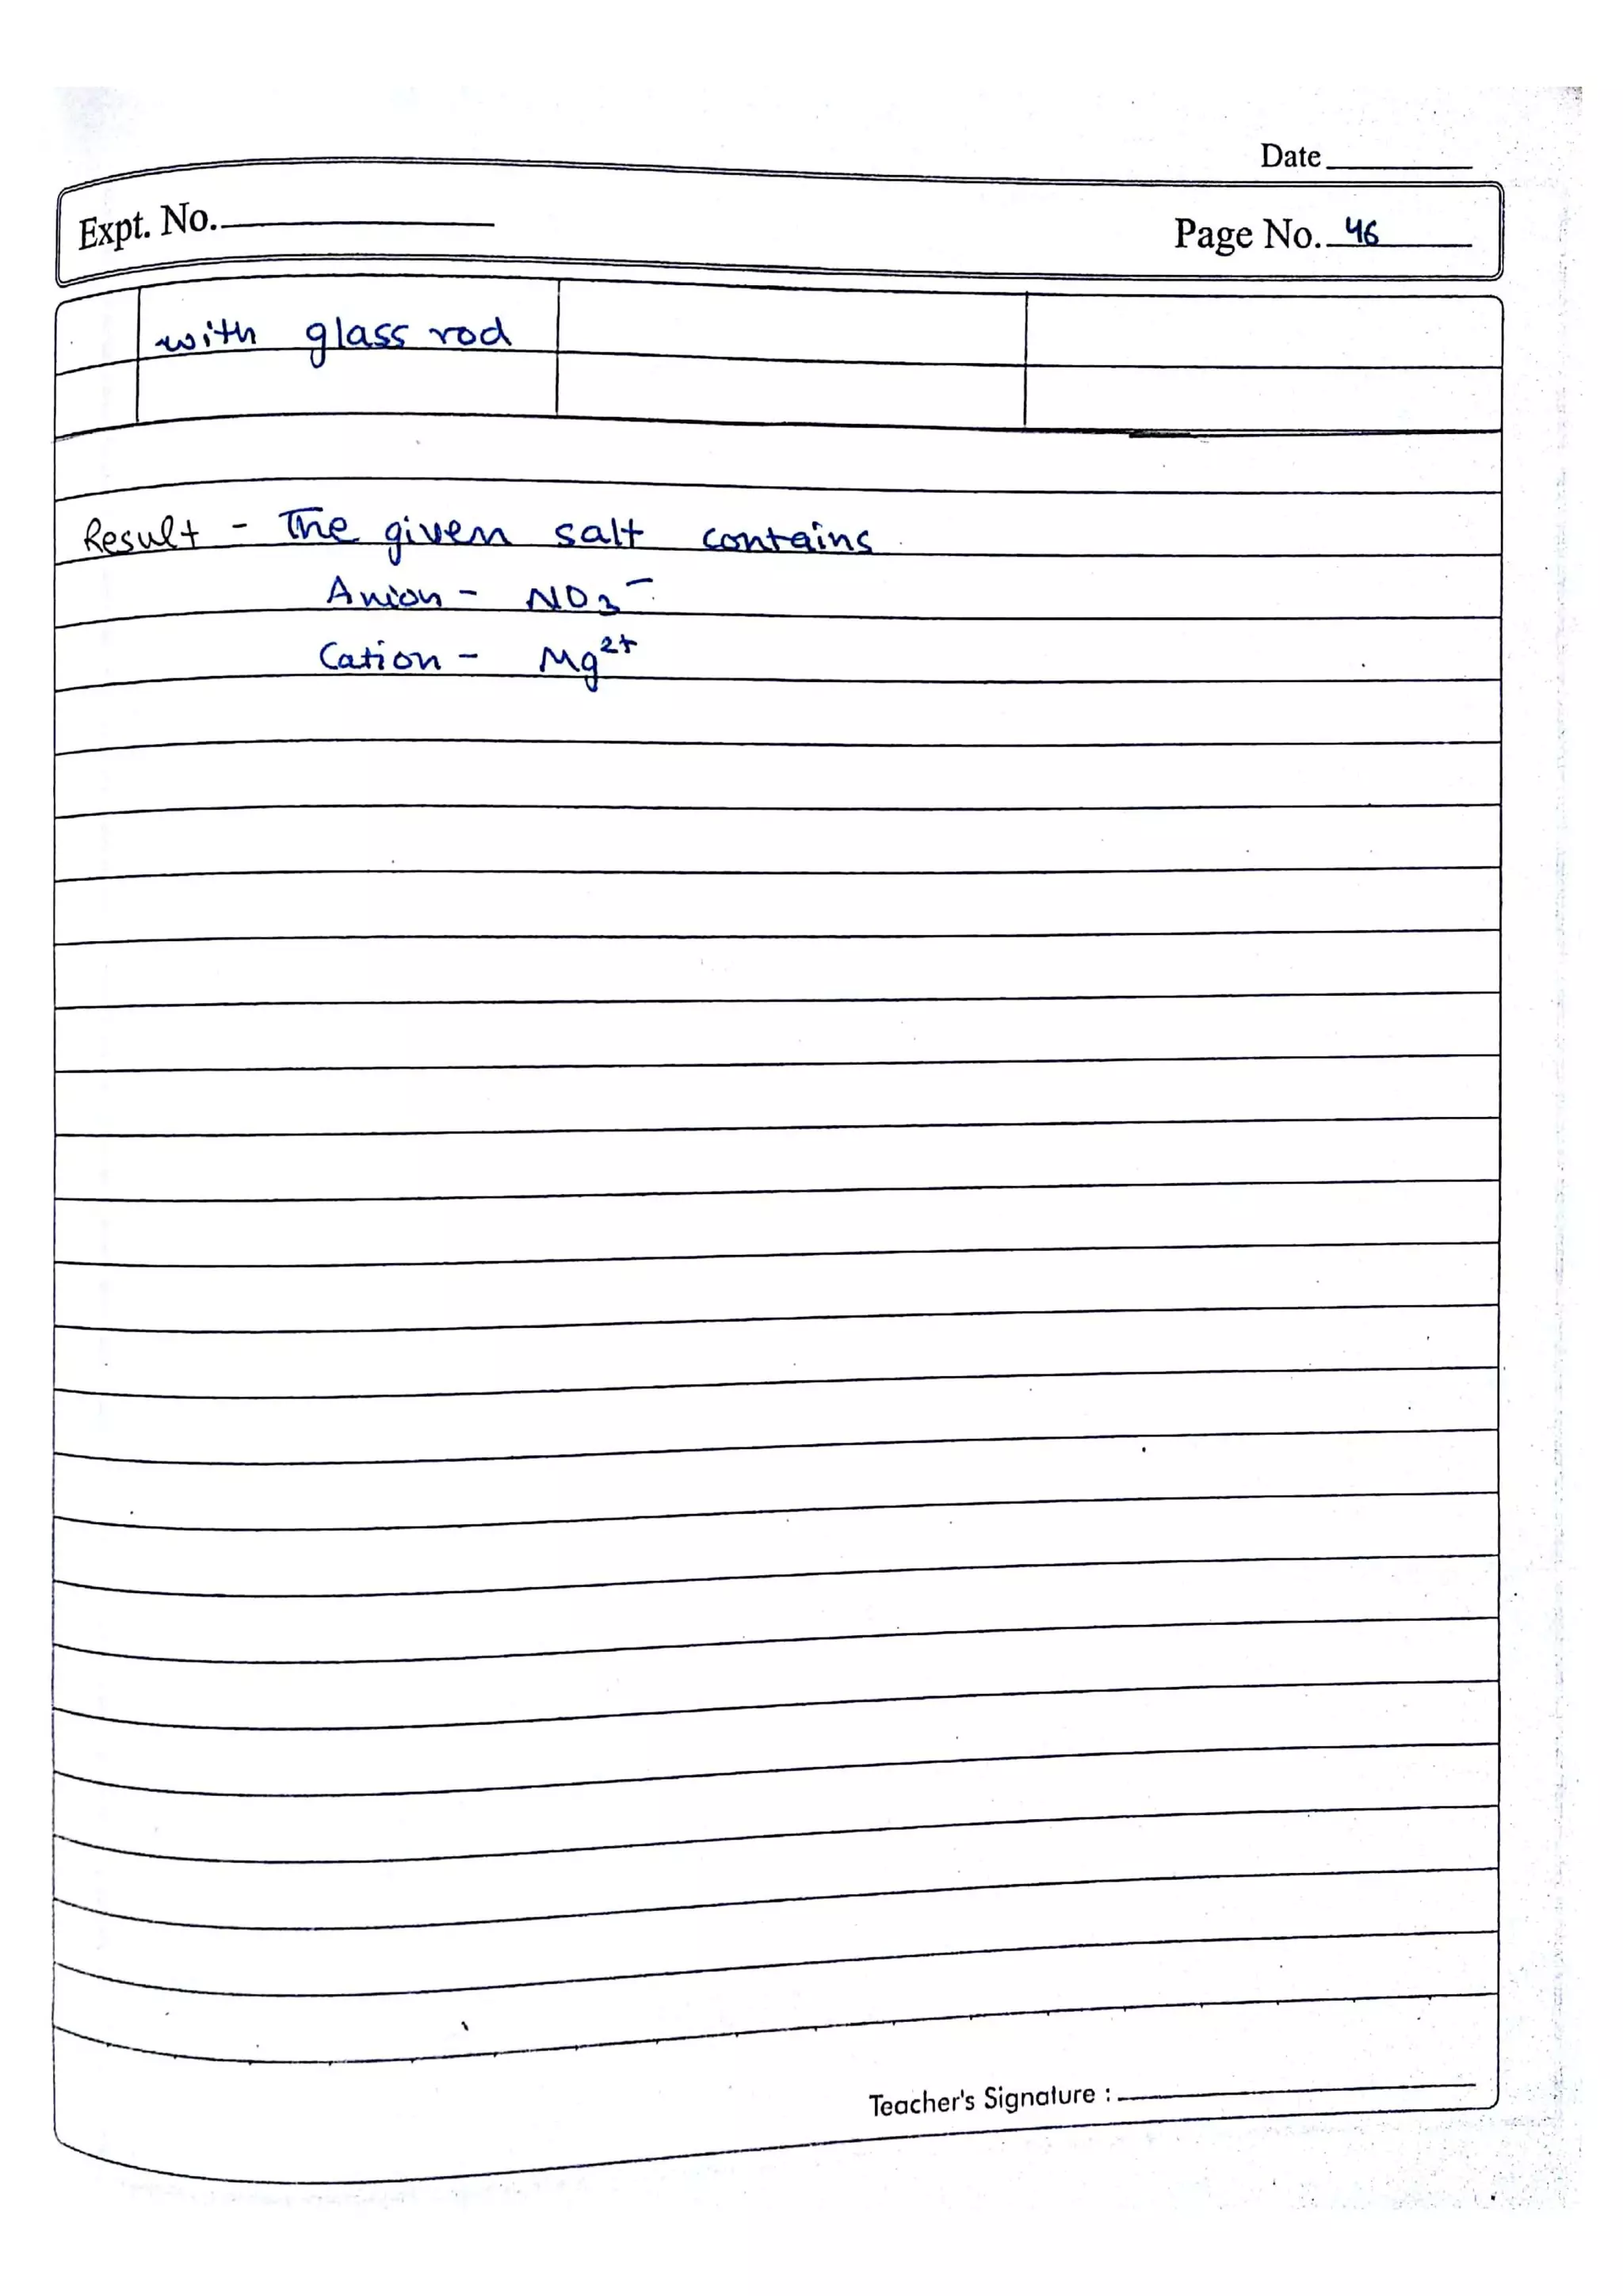 Date
Expt. No.
Page No. 46
with glass rod
Result - The given salt contains
Anion - NO3⁻
Cation - Mg²⁺
Teacher's Signature :